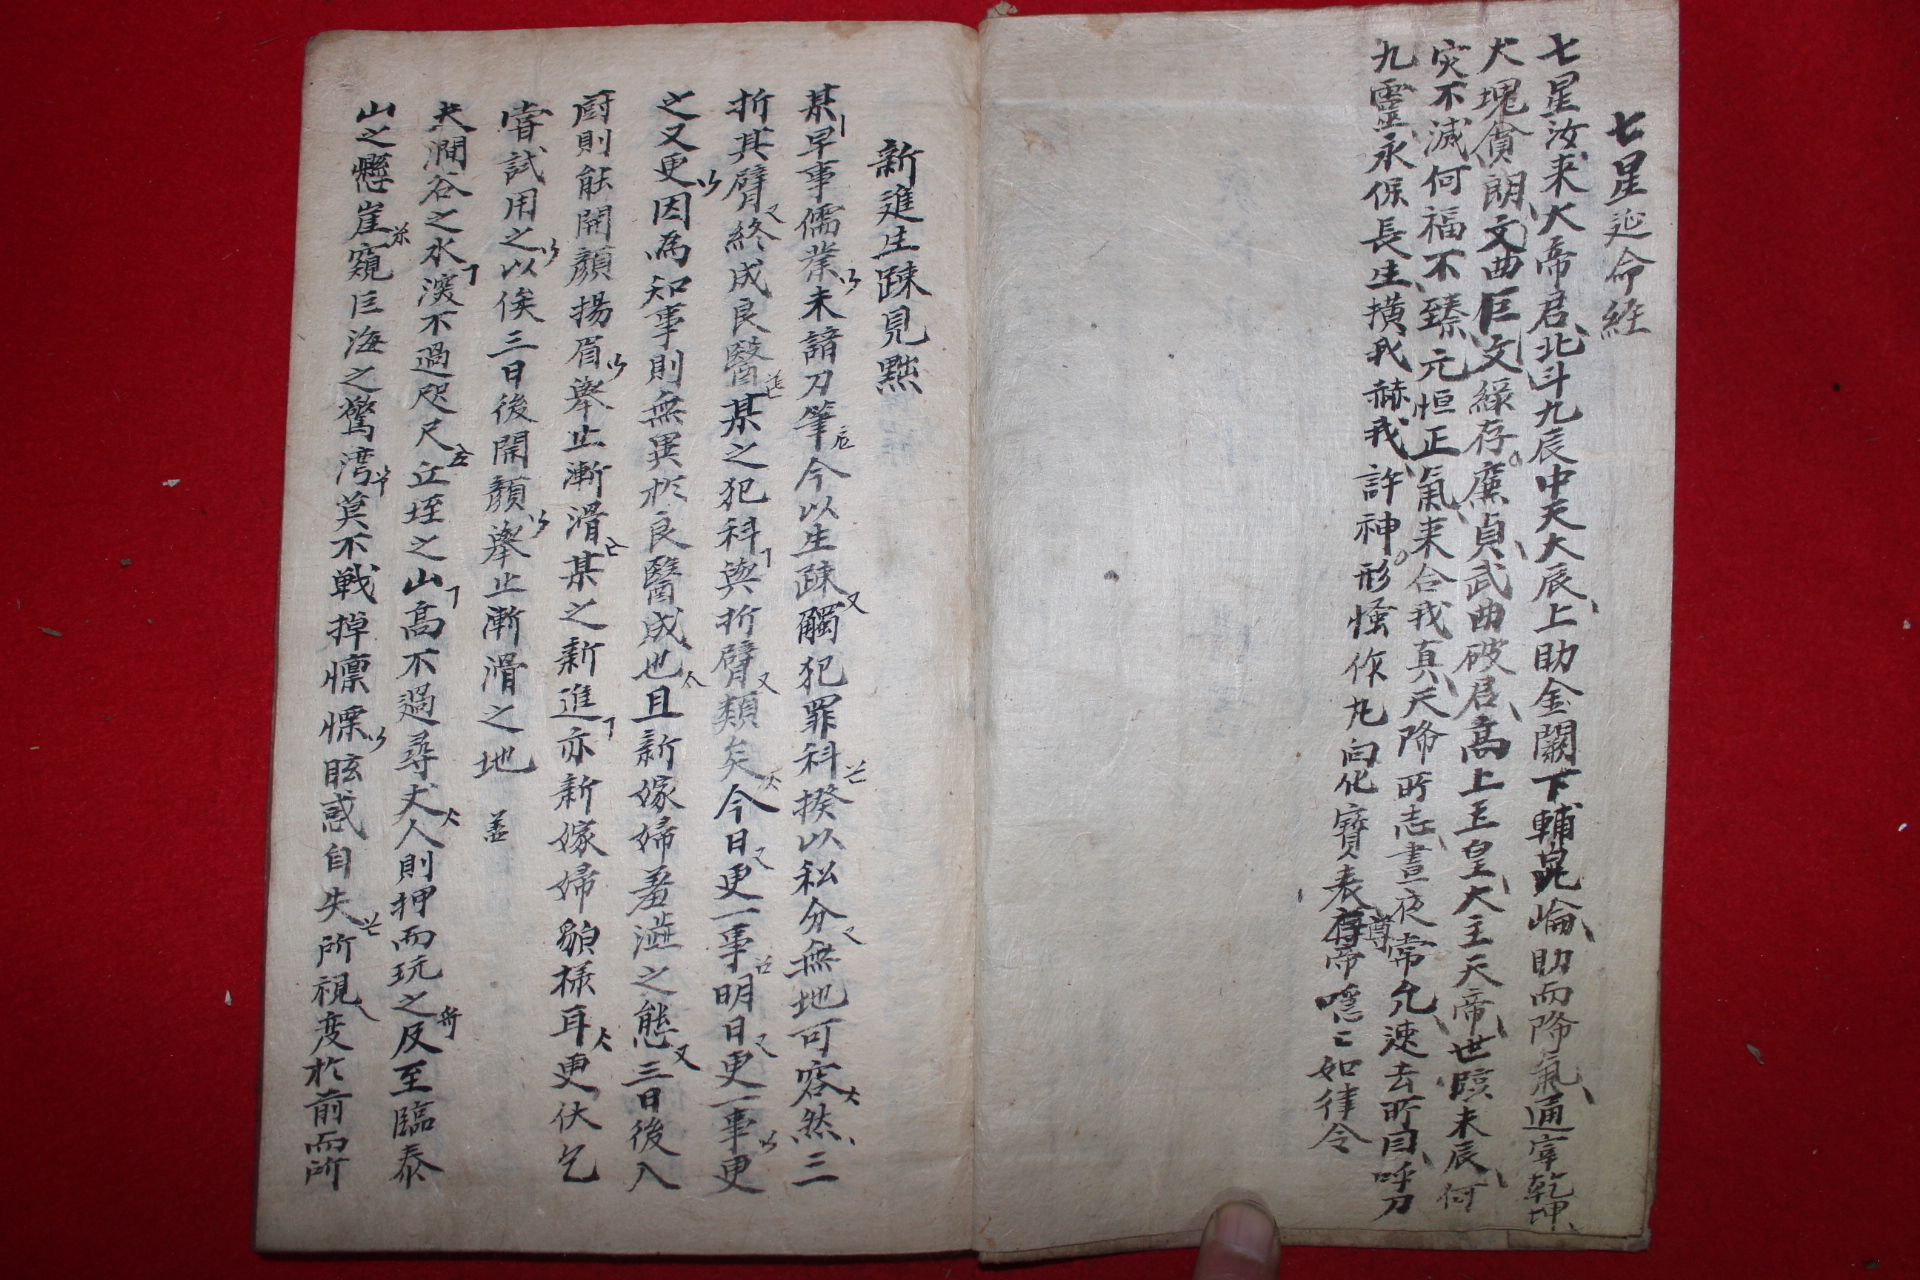 七星延命經
七星汝来大帝君北斗九辰中天大辰上助金闕下輔崑崘助而降氣通宰乾坤
大塊貪朗文曲巨文綠存廉貞武曲破君高上玉皇大主天帝世賅未辰何
灾不滅何福不臻元恒正氣来合我真天降所志晝夜常允速去所自呼刀
九靈永保長生橫我赫我許神形慅作九向化寶表尊帝唵〻如律令
新進生踈見黜
某早事儒業未諳刀筆今以生踈觸犯罪科揆以私分無地可容然三
折其臂終成良醫某之犯科與折臂類矣今日更一事明日更一事更
之又更因為知事則無異於良醫成也且新嫁婦羞澁之態三日後入
厨則能開顔揚眉擧止漸滑某之新進亦新嫁婦貌樣耳更伏乞
甞試用之以俟三日後開顔擧止漸滑之地 盖
夫澗谷之水深不過咫尺丘垤之山高不過尋丈人則押而玩之及至臨泰
山之懸崖窺巨海之驚湾莫不戦掉懍慄眩惑自失所視变於前而所